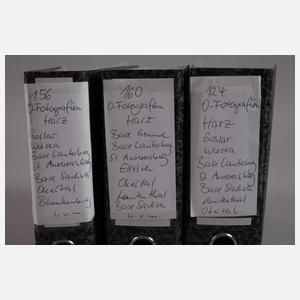 156
O-Fotografien
Harz
Goslar
Bad Lauterberg
St. Andreasberg
Bad Sachsa
Okertal
Blankenburg
u.v.m.
160
O-Fotografien
Harz
Bad Grund
Bad Lauterberg
St. Andreasberg
Ellrich
Okertal
Lautenthal
Bad Sachsa
u.v.m.
124
O-Fotografien
Harz
Goslar
Bad Lauterberg
St. Andreasberg
Bad Sachsa
Lautenthal
Okertal